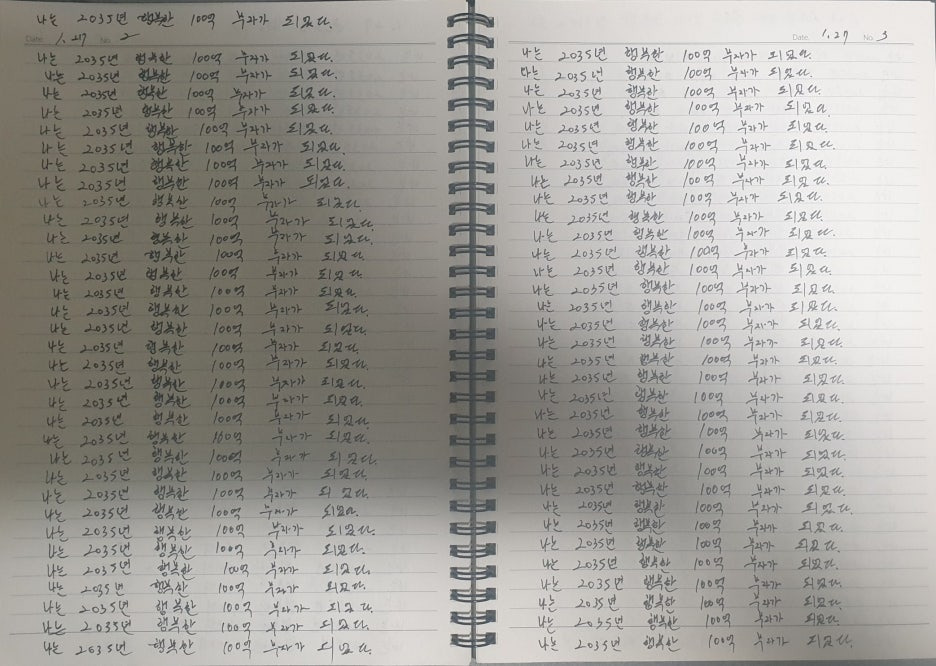 나는 2035년 행복한 100억 부자가 되었다.
Date. 1.27 No. 2
나는 2035년 행복한 100억 부자가 되었다.
나는 2035년 행복한 100억 부자가 되었다.
나는 2035년 행복한 100억 부자가 되었다.
나는 2035년 행복한 100억 부자가 되었다.
나는 2035년 행복한 100억 부자가 되었다.
나는 2035년 행복한 100억 부자가 되었다.
나는 2035년 행복한 100억 부자가 되었다.
나는 2035년 행복한 100억 부자가 되었다.
나는 2035년 행복한 100억 부자가 되었다.
나는 2035년 행복한 100억 부자가 되었다.
나는 2035년 행복한 100억 부자가 되었다.
나는 2035년 행복한 100억 부자가 되었다.
나는 2035년 행복한 100억 부자가 되었다.
나는 2035년 행복한 100억 부자가 되었다.
나는 2035년 행복한 100억 부자가 되었다.
나는 2035년 행복한 100억 부자가 되었다.
나는 2035년 행복한 100억 부자가 되었다.
나는 2035년 행복한 100억 부자가 되었다.
나는 2035년 행복한 100억 부자가 되었다.
나는 2035년 행복한 100억 부자가 되었다.
나는 2035년 행복한 100억 부자가 되었다.
나는 2035년 행복한 100억 부자가 되었다.
나는 2035년 행복한 100억 부자가 되었다.
나는 2035년 행복한 100억 부자가 되었다.
나는 2035년 행복한 100억 부자가 되었다.
나는 2035년 행복한 100억 부자가 되었다.
나는 2035년 행복한 100억 부자가 되었다.
나는 2035년 행복한 100억 부자가 되었다.
나는 2035년 행복한 100억 부자가 되었다.
나는 2035년 행복한 100억 부자가 되었다.
나는 2035년 행복한 100억 부자가 되었다.
나는 2035년 행복한 100억 부자가 되었다.
나는 2035년 행복한 100억 부자가 되었다.
Date. 1.27 No. 3
나는 2035년 행복한 100억 부자가 되었다.
나는 2035년 행복한 100억 부자가 되었다.
나는 2035년 행복한 100억 부자가 되었다.
나는 2035년 행복한 100억 부자가 되었다.
나는 2035년 행복한 100억 부자가 되었다.
나는 2035년 행복한 100억 부자가 되었다.
나는 2035년 행복한 100억 부자가 되었다.
나는 2035년 행복한 100억 부자가 되었다.
나는 2035년 행복한 100억 부자가 되었다.
나는 2035년 행복한 100억 부자가 되었다.
나는 2035년 행복한 100억 부자가 되었다.
나는 2035년 행복한 100억 부자가 되었다.
나는 2035년 행복한 100억 부자가 되었다.
나는 2035년 행복한 100억 부자가 되었다.
나는 2035년 행복한 100억 부자가 되었다.
나는 2035년 행복한 100억 부자가 되었다.
나는 2035년 행복한 100억 부자가 되었다.
나는 2035년 행복한 100억 부자가 되었다.
나는 2035년 행복한 100억 부자가 되었다.
나는 2035년 행복한 100억 부자가 되었다.
나는 2035년 행복한 100억 부자가 되었다.
나는 2035년 행복한 100억 부자가 되었다.
나는 2035년 행복한 100억 부자가 되었다.
나는 2035년 행복한 100억 부자가 되었다.
나는 2035년 행복한 100억 부자가 되었다.
나는 2035년 행복한 100억 부자가 되었다.
나는 2035년 행복한 100억 부자가 되었다.
나는 2035년 행복한 100억 부자가 되었다.
나는 2035년 행복한 100억 부자가 되었다.
나는 2035년 행복한 100억 부자가 되었다.
나는 2035년 행복한 100억 부자가 되었다.
나는 2035년 행복한 100억 부자가 되었다.
나는 2035년 행복한 100억 부자가 되었다.